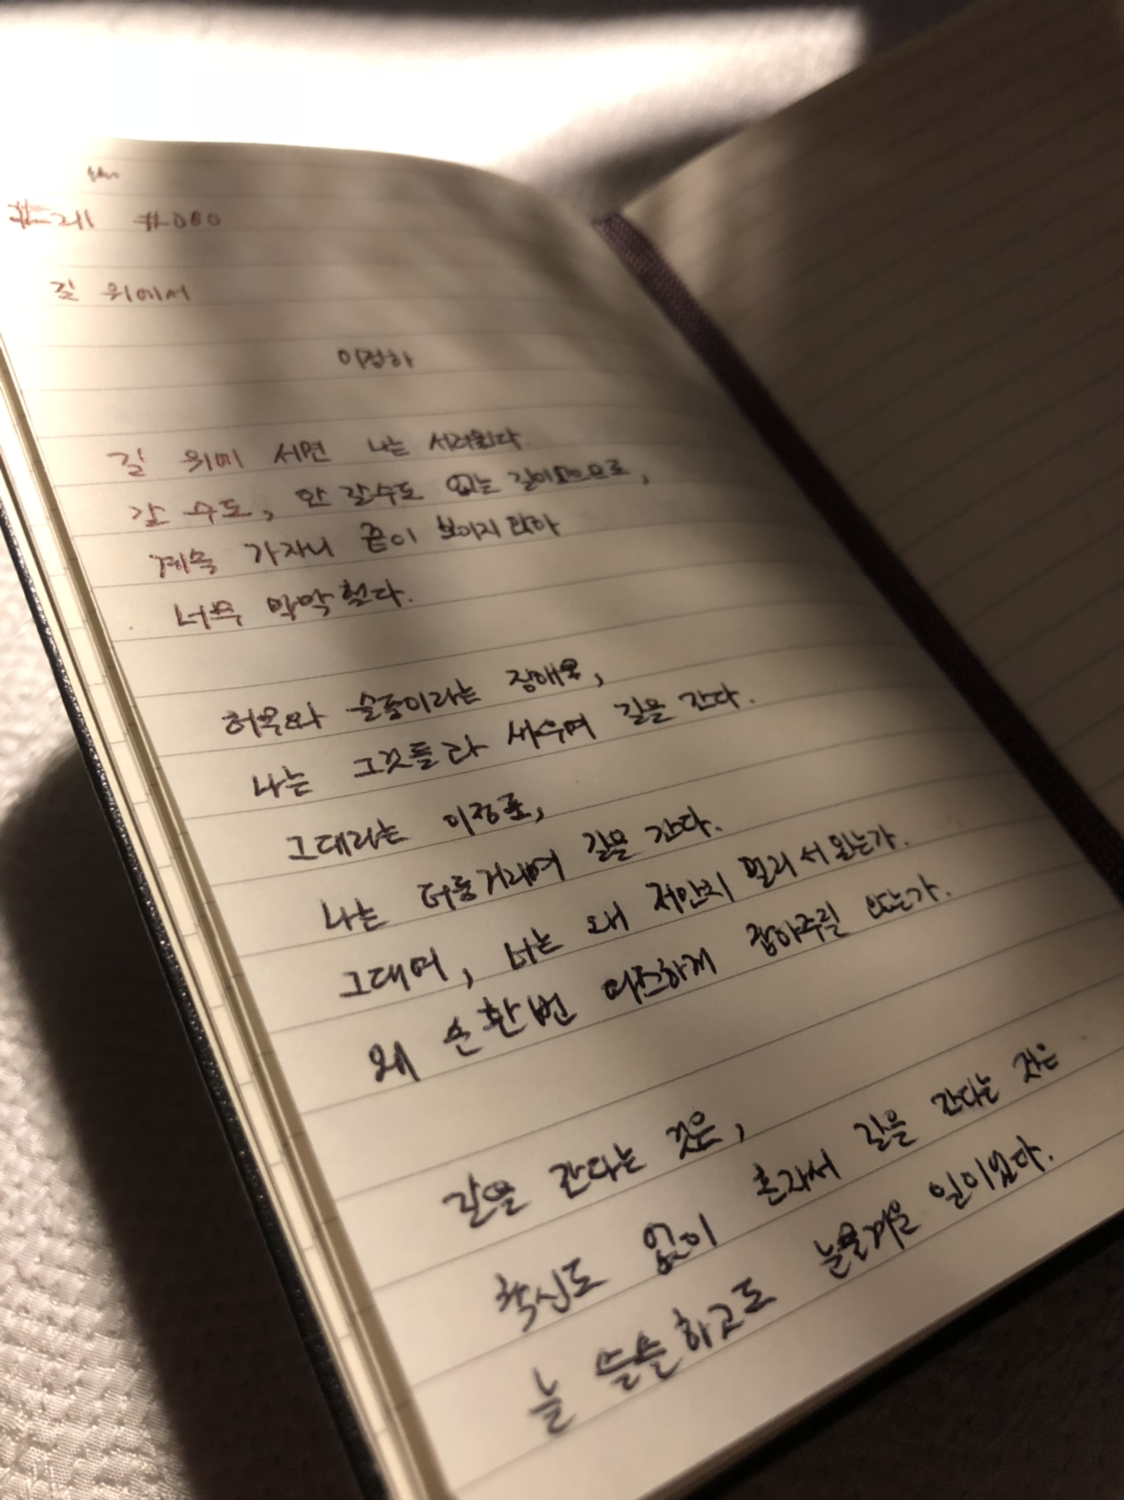 #211 #080
길 위에서
이정하
길 위에 서면 나는 서러웠다.
갈 수도, 안 갈수도 없는 길이었으므로,
계속 가자니 끝이 보이지 않아
너무 막막했다.
허무와 슬픔이라는 장애물,
나는 그것들과 싸우며 길을 간다.
그대라는 이정표,
나는 더듬거리며 길을 간다.
그대여, 너는 왜 저만치 멀리 서 있는가.
왜 손 한번 따스하게 잡아주질 않는가.
길을 간다는 것은,
확신도 없이 혼자서 길을 간다는 것은
늘 쓸쓸하고도 눈물겨운 일이었다.